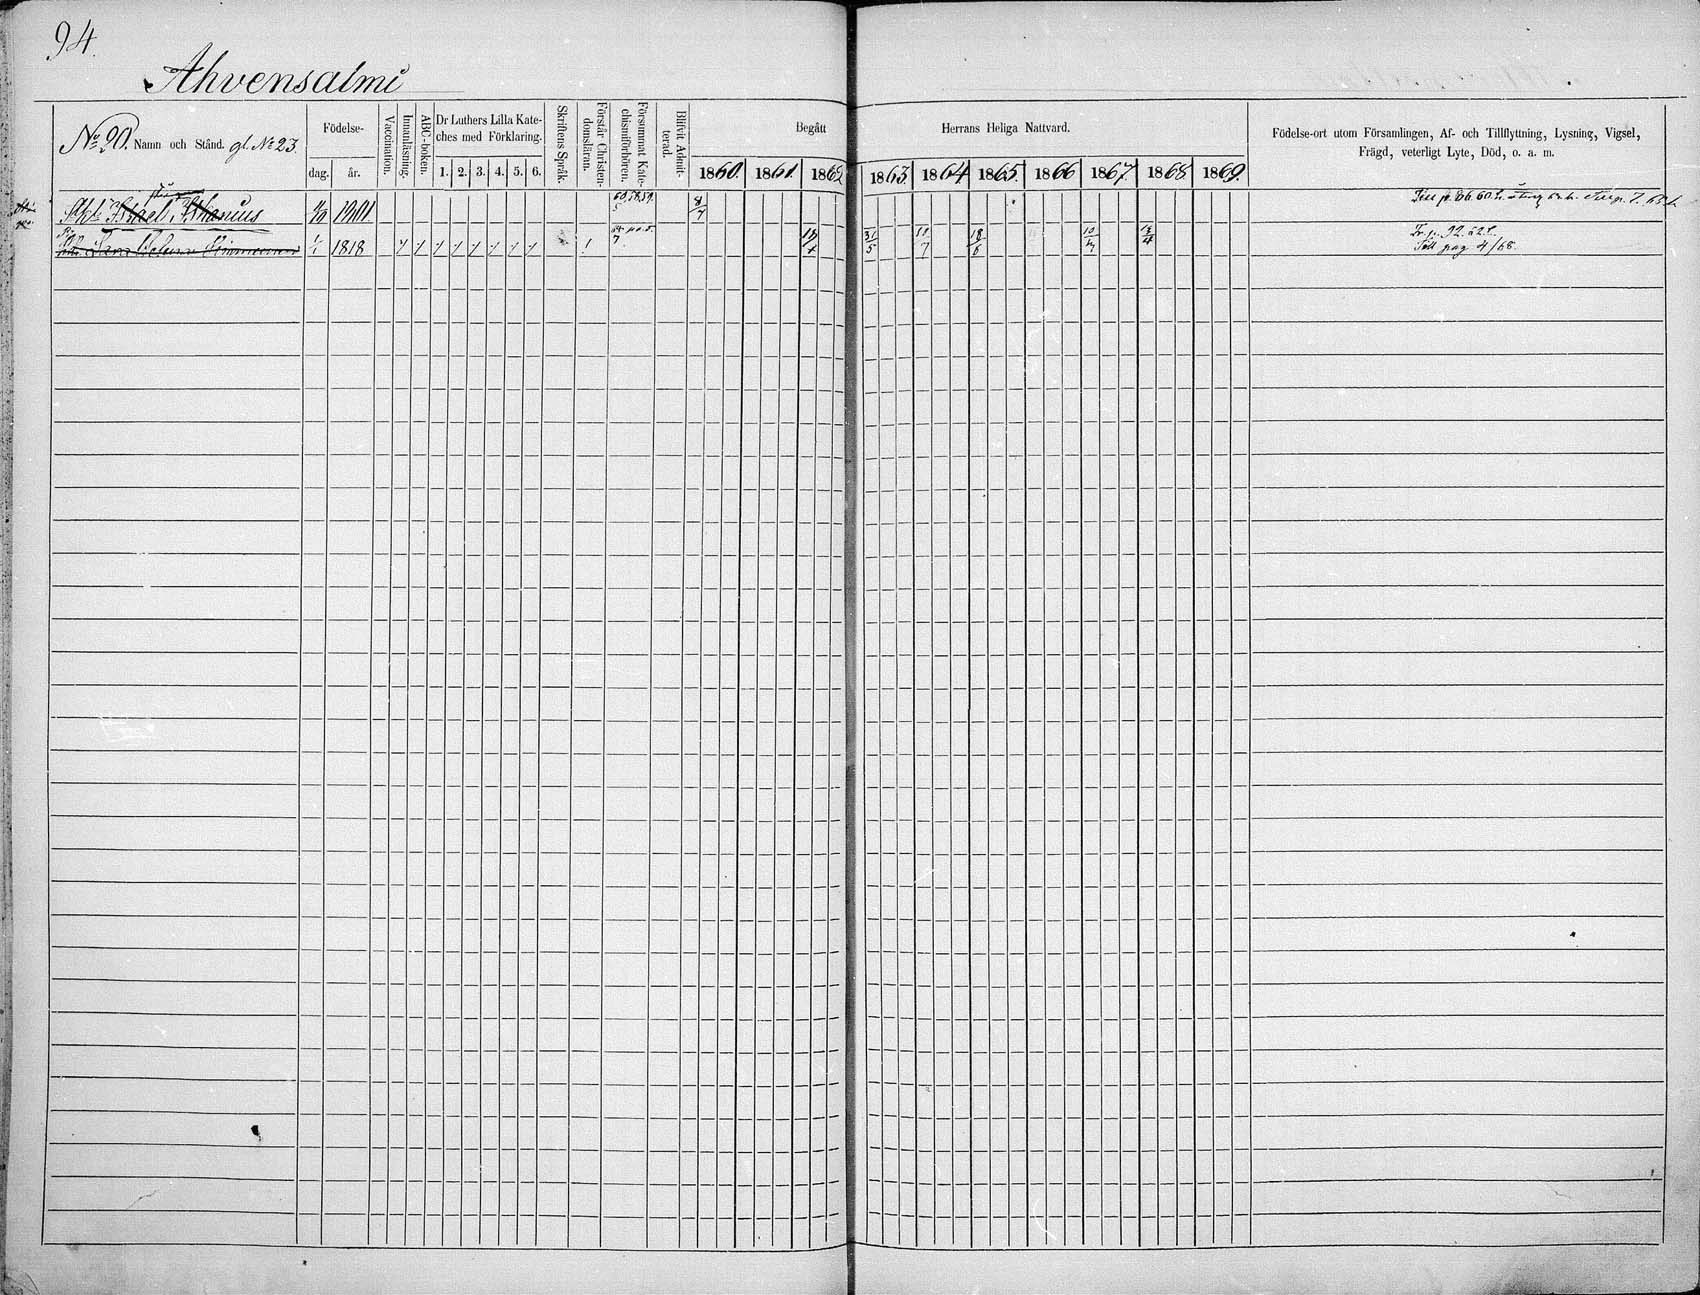 94.
Ahvensalmi
No 20. Namn och Stånd. gl. No 23.
Födelse-
dag.
år.
Vaccination.
Innanläsning.
ABC-boken.
Dr Luthers Lilla Kate-
ches med Förklaring.
1. 2. 3. 4. 5. 6.
Skriftens Språk.
Förstår Christen-
domsläran.
Försummat Kate-
chismiförhören.
Blifvit Admit-
terad.
Begått Herrans Heliga Nattvard.
1860. 1861. 1862. 1863. 1864. 1865. 1866 1867. 1868 1869.
Födelse-ort utom Församlingen, Af- och Tillflyttning, Lysning, Vigsel,
Frägd, veterligt Lyte, Död, o. a. m.
60, 58, 59. 8/7
1/1 1818 7 31/5 11/7 18/6 10/4 Fr. p. 92. 62.
Till pag 4/68.